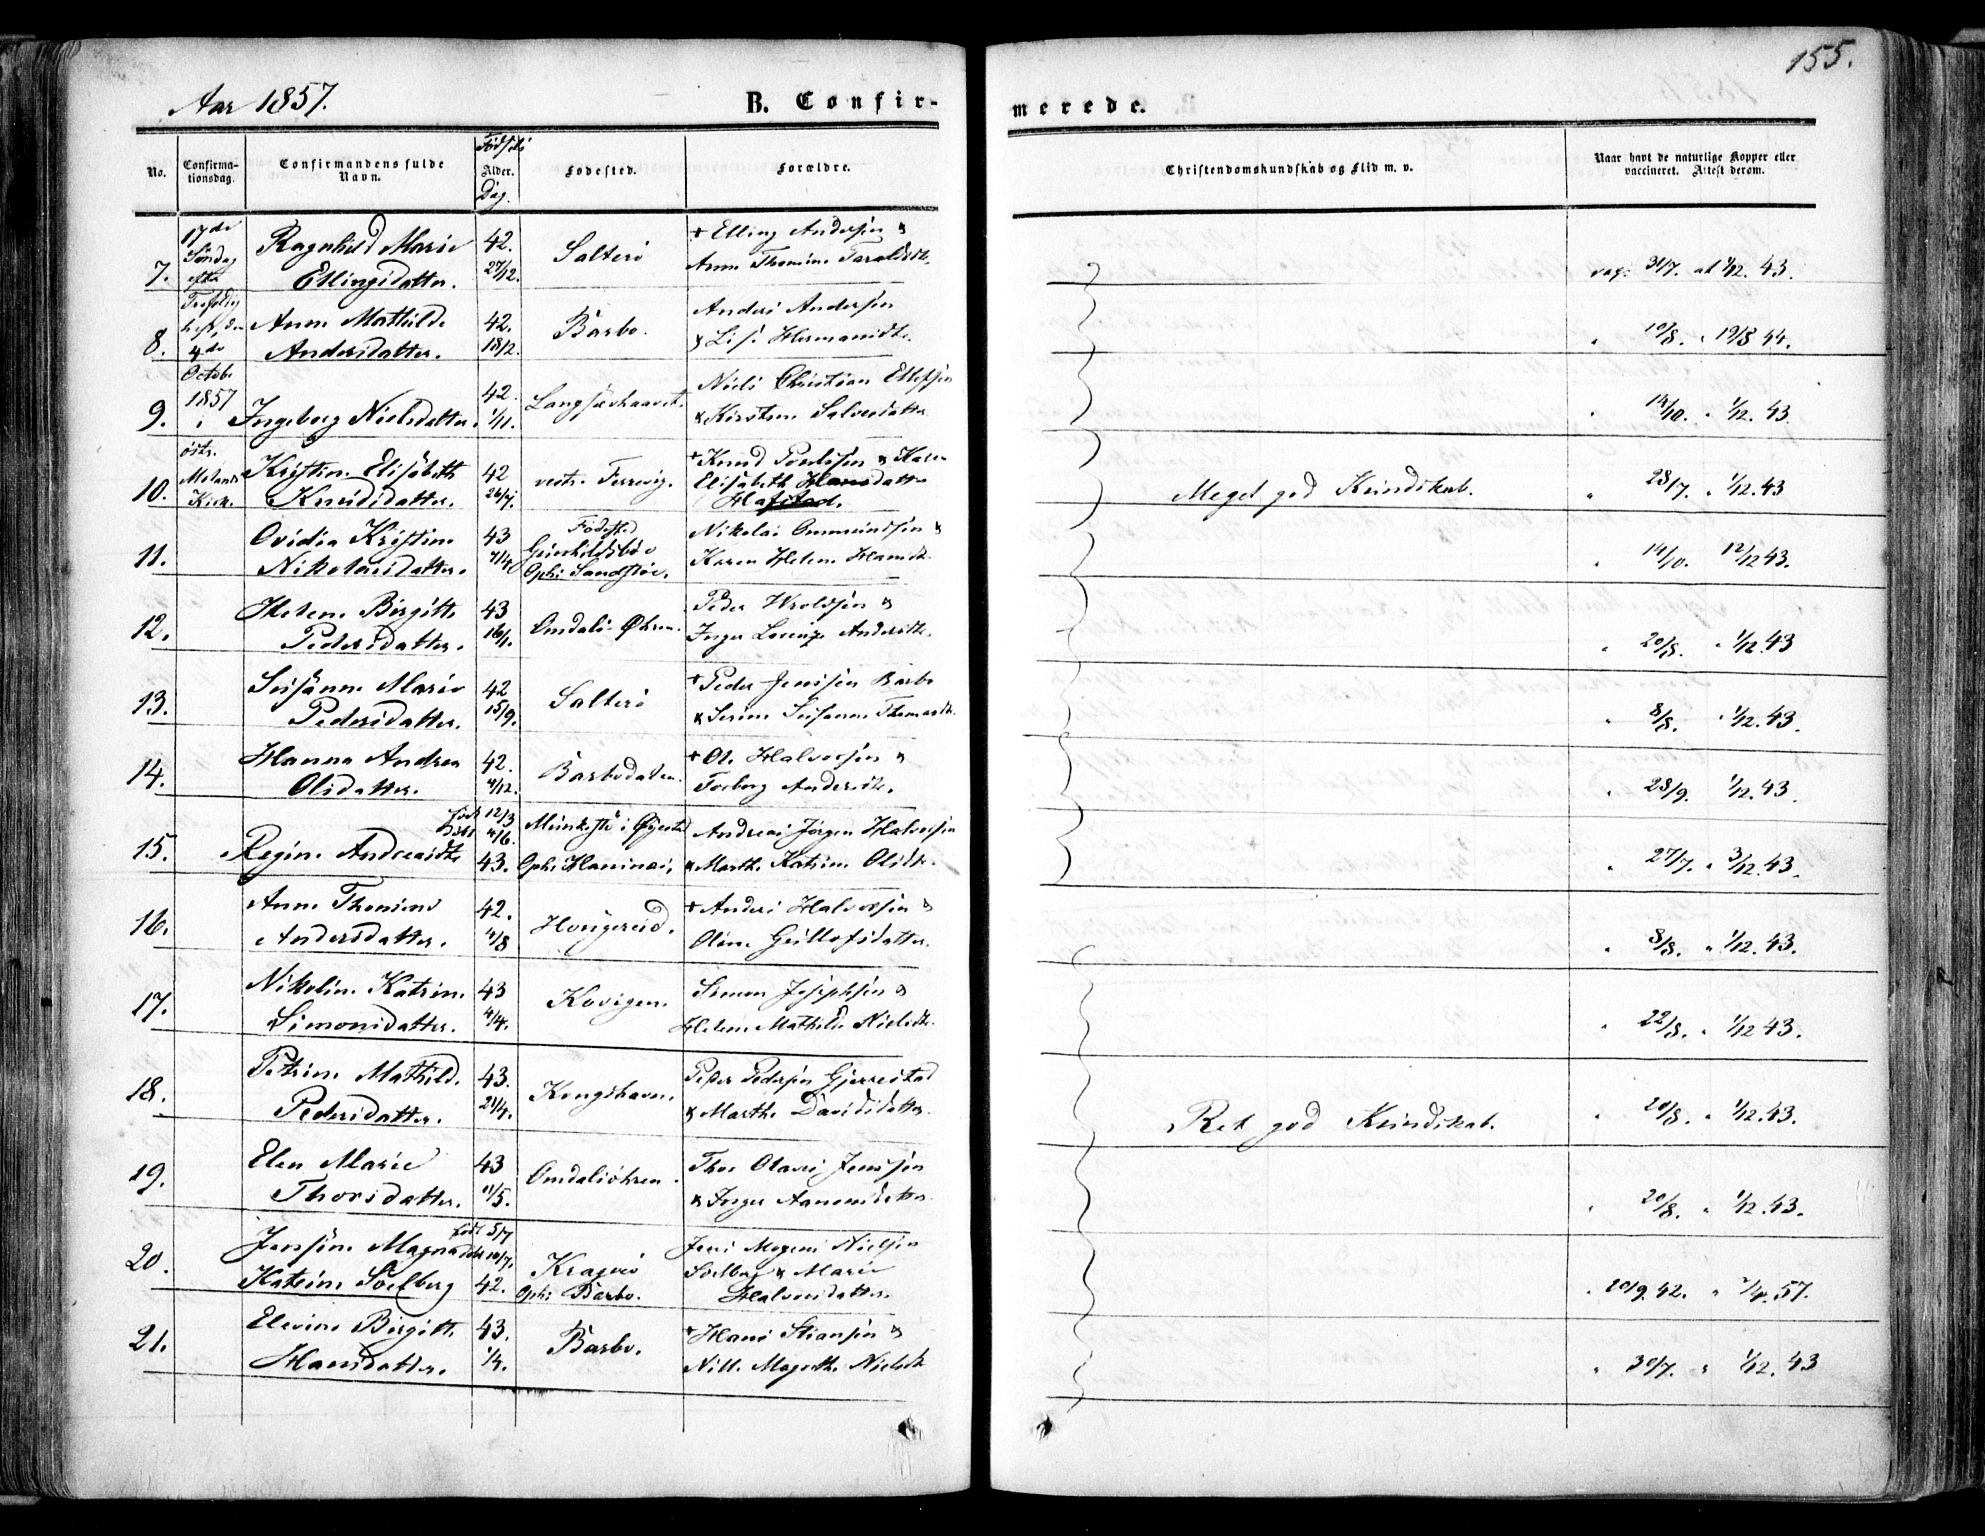 155.
Aar 1857.
B. Confir-
merede.
No.
Confirma-
tionsdag.
Confirmandens fulde
Navn.
Fødsels
Alder.
Dag.
Fødested.
Forældre.
Christendomskundskab og Flid m. v.
Naar havt de naturlige Kopper eller
vaccineret. Attest derom.
17de
Søndag
efter
Trefoldig
hefs, den
4de
Octobr
1857
østr.
Molands
Kirk.
7. Ragnhild Marie
Ellingsdatter.
42.
27/12.
Salterø
+ Elling Andersen &
Anne Thomine Taraldsdtr.
vac. 31/7. at 1/12. 43.
8. Anne Mathilde
Andersdatter.
42.
18/2.
Barbo.
Anders Andersen
& Lise Hermansdtr.
" 10/8. " 19/8 44.
9. Ingeborg Nielsdatter.
42.
1/11.
Langsævhaavet.
Niels Christian Ellefsen
& Kirstine Salvesdatter
" 14/10. " 1/12. 43.
10. Kristine Elisabeth
Knudsdatter.
42
26/4.
vestre Terrevig.
+ Knud Poulsen & Karen
Elisabeth Hansdatter
Hafstad.
Meget god Kundskab.
" 28/7. " 1/12. 43
11. Ovidia Kristine
Nikolaisdatter.
43
4/4.
Fødested
Gunhildsbøe
Ophs Sandstøe.
Nikolai Ommundsen &
Karen Helene Hansdtr.
" 14/10. 12/12 43.
12. Helene Birgitte
Pedersdatter.
43
16/1.
Omdals Øhren.
Peder Wroldsen &
Inger Lorenze Andersdtr.
" 20/8. " 1/12. 43
13. Susanne Marie
Pedersdatter.
42
15/9.
Salterø
+ Peder Jenssen Barbo
& Serine Susanne Thomasdtr.
" 8/8. " 1/12. 43.
14. Hanna Andrea
Olsdatter.
42.
4/12.
Barbodalen.
+ Ole Halvorsen &
Torborg Andersdtr.
" 28/9. 1/12. 43.
15. Regine Andreasdtr
født 12/3
døbt 4/6.
43.
Munkestø i Øyestad
Ophs Hansnæs,
Andreas Jørgen Halvorsen
& Marthe Katrine Olsdtr.
" 27/7. " 3/12. 43.
16. Anne Thomine
Andersdatter.
42.
4/8
Hougereid.
+ Anders Halvorsen &
Oline Gullofsdatter.
" 8/8. " 1/12. 43.
17. Nikoline Katrine
Simonsdatter.
43
4/4.
Kovigen.
Simon Josephsen &
Helene Mathilde Nielsdtr.
" 22/8. " 1/12 43.
18. Petrine Mathilde
Pedersdatter.
43.
21/4.
Kongshavn.
Peder Pedersen Gjerrestad
& Marthe Davidsdatter.
Ret god Kundskab.
" 20/8. " 1/12. 43.
19. Elen Marie
Thorsdatter.
43
11/5.
Omdalsøhren.
Thor Olaves Jenssen
& Inger Aanonsdatter
" 20/8. " 1/12. 43.
20. Jensine Magna
Katrine Soelberg
født 5/7
døbt 10/7.
42.
Kragerø
Ophs Barbo.
Jens Mogens Nielsen
Soelberg & Marie
Halvorsdatter.
" 20/9. 42. " 2/4. 57.
21. Elevine Birgitte
Hansdatter.
43.
1/4.
Barbo.
+ Hans Stiansen &
Nille Magrethe Nielsdtr
" 30/7. " 1/12. 43